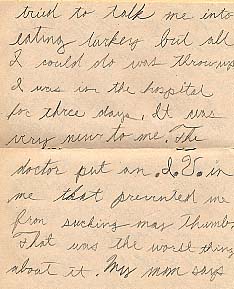 tried to talk me into
eating turkey but all
I could do was throw up
I was in the hospital
for three days. It was
very new to me. The
doctor put an .I.V. in
me that prevented me
from sucking may Thumb.
That was the worst thing
about it. My mom says